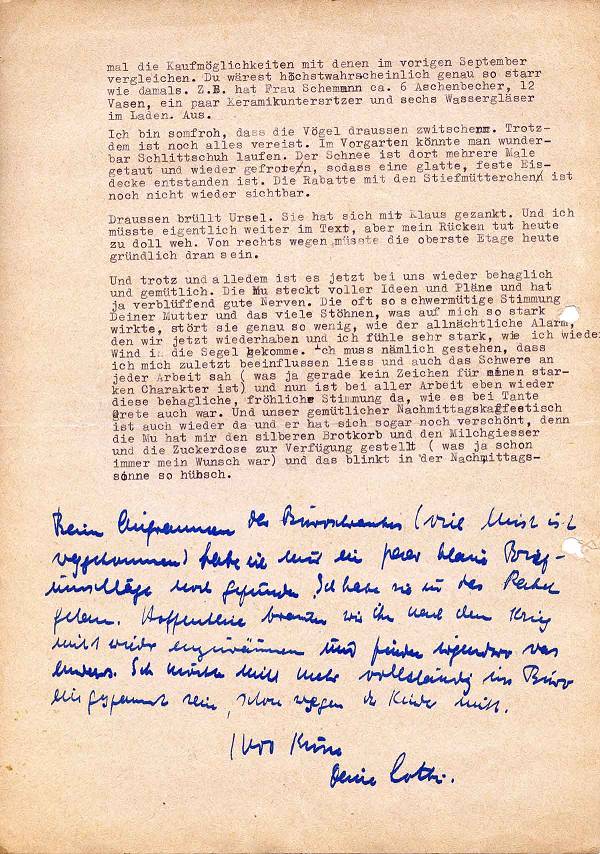 mal die Kaufmöglichkeiten mit denen im vorigen September
vergleichen. Du wärest höchstwahrscheinlich genau so starr
wie damals. Z.B. hat Frau Schemann ca. 6 Aschenbecher, 12
Vasen, ein paar Keramikuntersrtzer und sechs Wassergläser
im Laden. Aus.
Ich bin somfroh, dass die Vögel draussen zwitschern. Trotz-
dem ist noch alles vereist. Im Vorgarten könnte man wunder-
bar Schlittschuh laufen. Der Schnee ist dort mehrere Male
getaut und wieder gefroren, sodass eine glatte, feste Eis-
decke entstanden ist. Die Rabatte mit den Stiefmütterchen ist
noch nicht wieder sichtbar.
Draussen brüllt Ursel. Sie hat sich mit Klaus gezankt. Und ich
müsste eigentlich weiter im Text, aber mein Rücken tut heute
zu doll weh. Von rechts wegen müsste die oberste Etage heute
gründlich dran sein.
Und trotz und alledem ist es jetzt bei uns wieder behaglich
und gemütlich. Die Mu steckt voller Ideen und Pläne und hat
ja verblüffend gute Nerven. Die oft so schwermütige Stimmung
Deiner Mutter und das viele Stöhnen, was auf mich so stark
wirkte, stört sie genau so wenig, wie der allnächtliche Alarm,
den wir jetzt wiederhaben und ich fühle sehr stark, wie ich wieder
Wind in die Segel bekomme. Ich muss nämlich gestehen, dass
ich mich zuletzt beeinflussen liess und auch das Schwere an
jeder Arbeit sah ( was ja gerade kein Zeichen für meinen star-
ken Charakter ist) und nun ist bei aller Arbeit eben wieder
diese behagliche, fröhliche Stimmung da, wie es bei Tante
Grete auch war. Und unser gemütlicher Nachmittagskaffeetisch
ist auch wieder da und er hat sich sogar noch verschönt, denn
die Mu hat mir den silberen Brotkorb und den Milchgiesser
und die Zuckerdose zur Verfügung gestellt ( was ja schon
immer mein Wunsch war) und das blinkt in der Nachmittags-
sonne so hübsch.
Beim Aufräumen des Büroschrankes (viel Mist ist
weggekommen) habe ich nur ein paar blaue Brief-
umschläge noch gefunden. Ich habe sie in das Paket
gelegt. Hoffentlich brauchen wir ihn nach dem Krieg
nicht wieder einzuräumen und finden irgendwo was
anderes. Ich möchte nicht mehr vollständig ins Büro
eingespannt sein, schon wegen der Kinder nicht.
Deine Lotti.